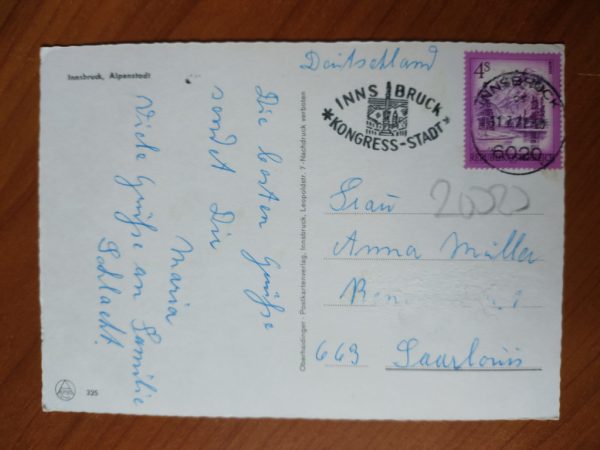 Innsbruck, Alpenstadt
Die besten Grüße
sendet Dir
Maria
Viele Grüße an Familie
Schlacht.
225
Oberhaidinger · Postkartenverlag, Innsbruck, Leopoldstr. 7 · Nachdruck verboten
Deutschland
INNSBRUCK
*KONGRESS-STADT*
4S
REPUBLIK ÖSTERREICH
INNSBRUCK
6020
2000
Frau
Anna Müller
663 Saarlouis